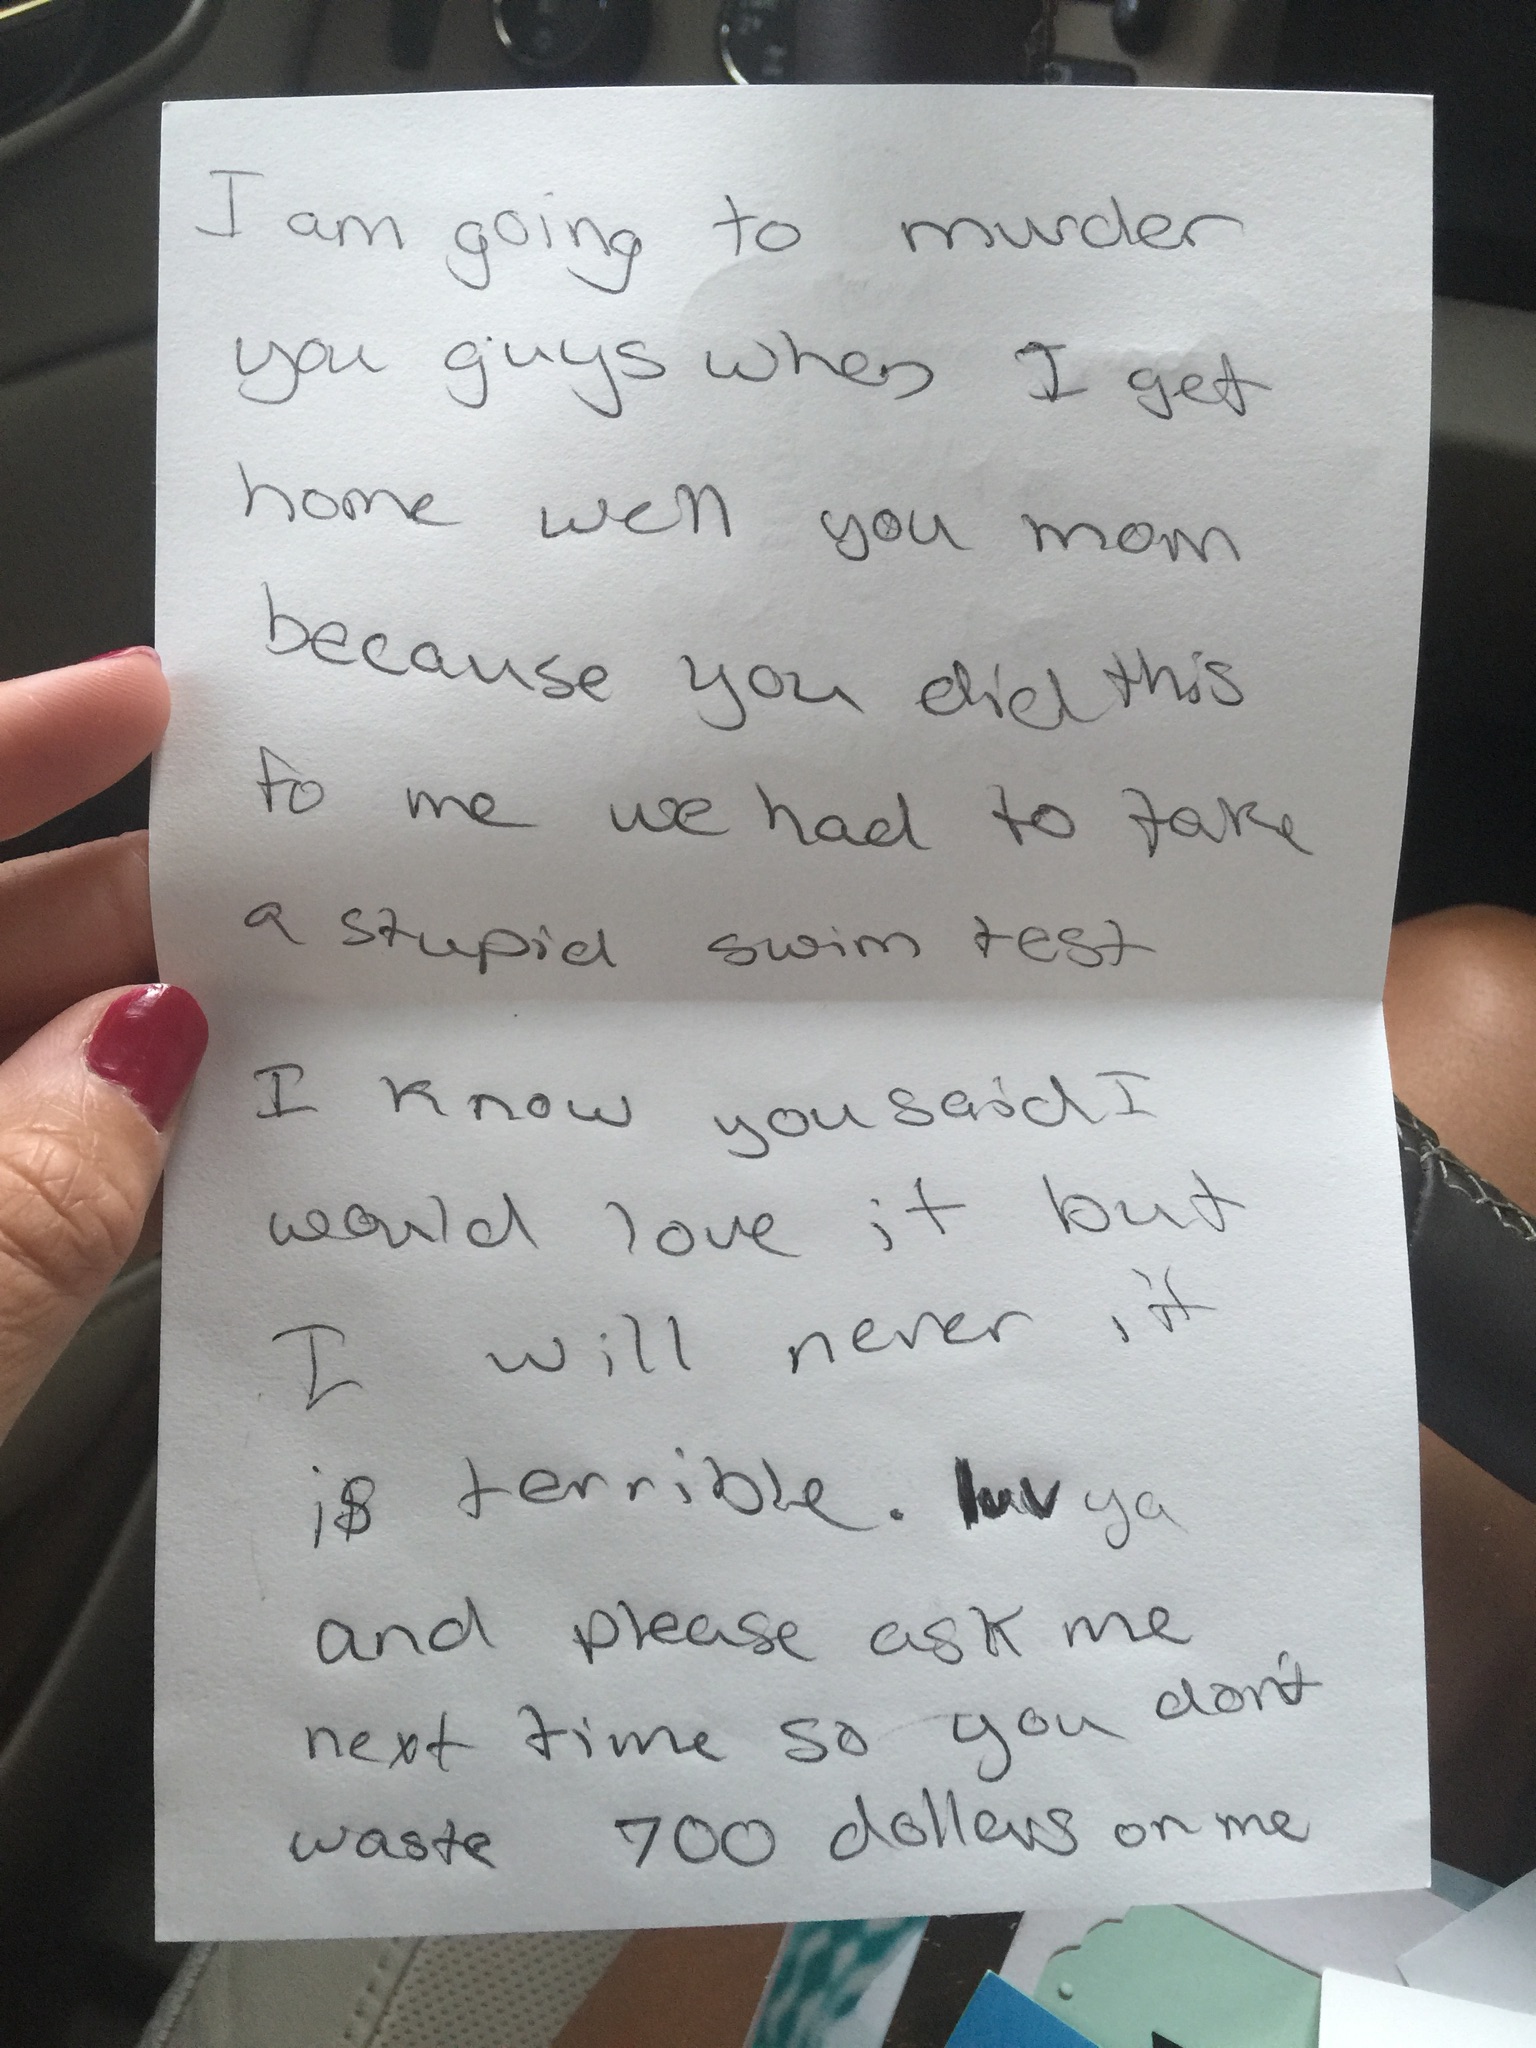 I am going to murder
you guys when I get
home well you mom
because you did this
to me we had to take
a stupid swim test
I know you said I
would love it but
I will never it
is terrible. luv ya
and please ask me
next time so you don't
waste 700 dollers on me